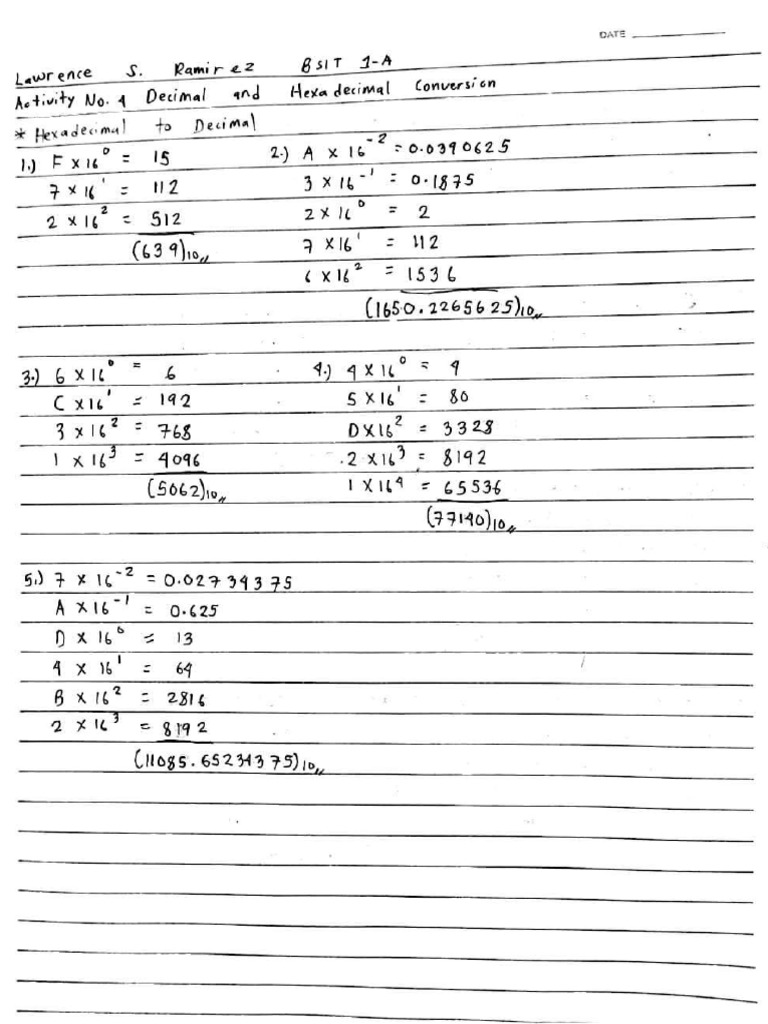 DATE
Lawrence S. Ramirez BSIT 1-A
Activity No. 4 Decimal and Hexadecimal Conversion
* Hexadecimal to Decimal
1.) F x 16⁰ = 15
7 x 16¹ = 112
2 x 16² = 512
(639)₁₀,,
2.) A x 16⁻² = 0.0390625
3 x 16⁻¹ = 0.1875
2 x 16⁰ = 2
7 x 16¹ = 112
6 x 16² = 1536
(1650.2265625)₁₀,,
3.) 6 x 16⁰ = 6
C x 16¹ = 192
3 x 16² = 768
1 x 16³ = 4096
(5062)₁₀,,
4.) 4 x 16⁰ = 4
5 x 16¹ = 80
D x 16² = 3328
2 x 16³ = 8192
1 x 16⁴ = 65536
(77140)₁₀,,
5.) 7 x 16⁻² = 0.02734375
A x 16⁻¹ = 0.625
D x 16⁰ = 13
4 x 16¹ = 64
B x 16² = 2816
2 x 16³ = 8192
(11085.65234375)₁₀,,